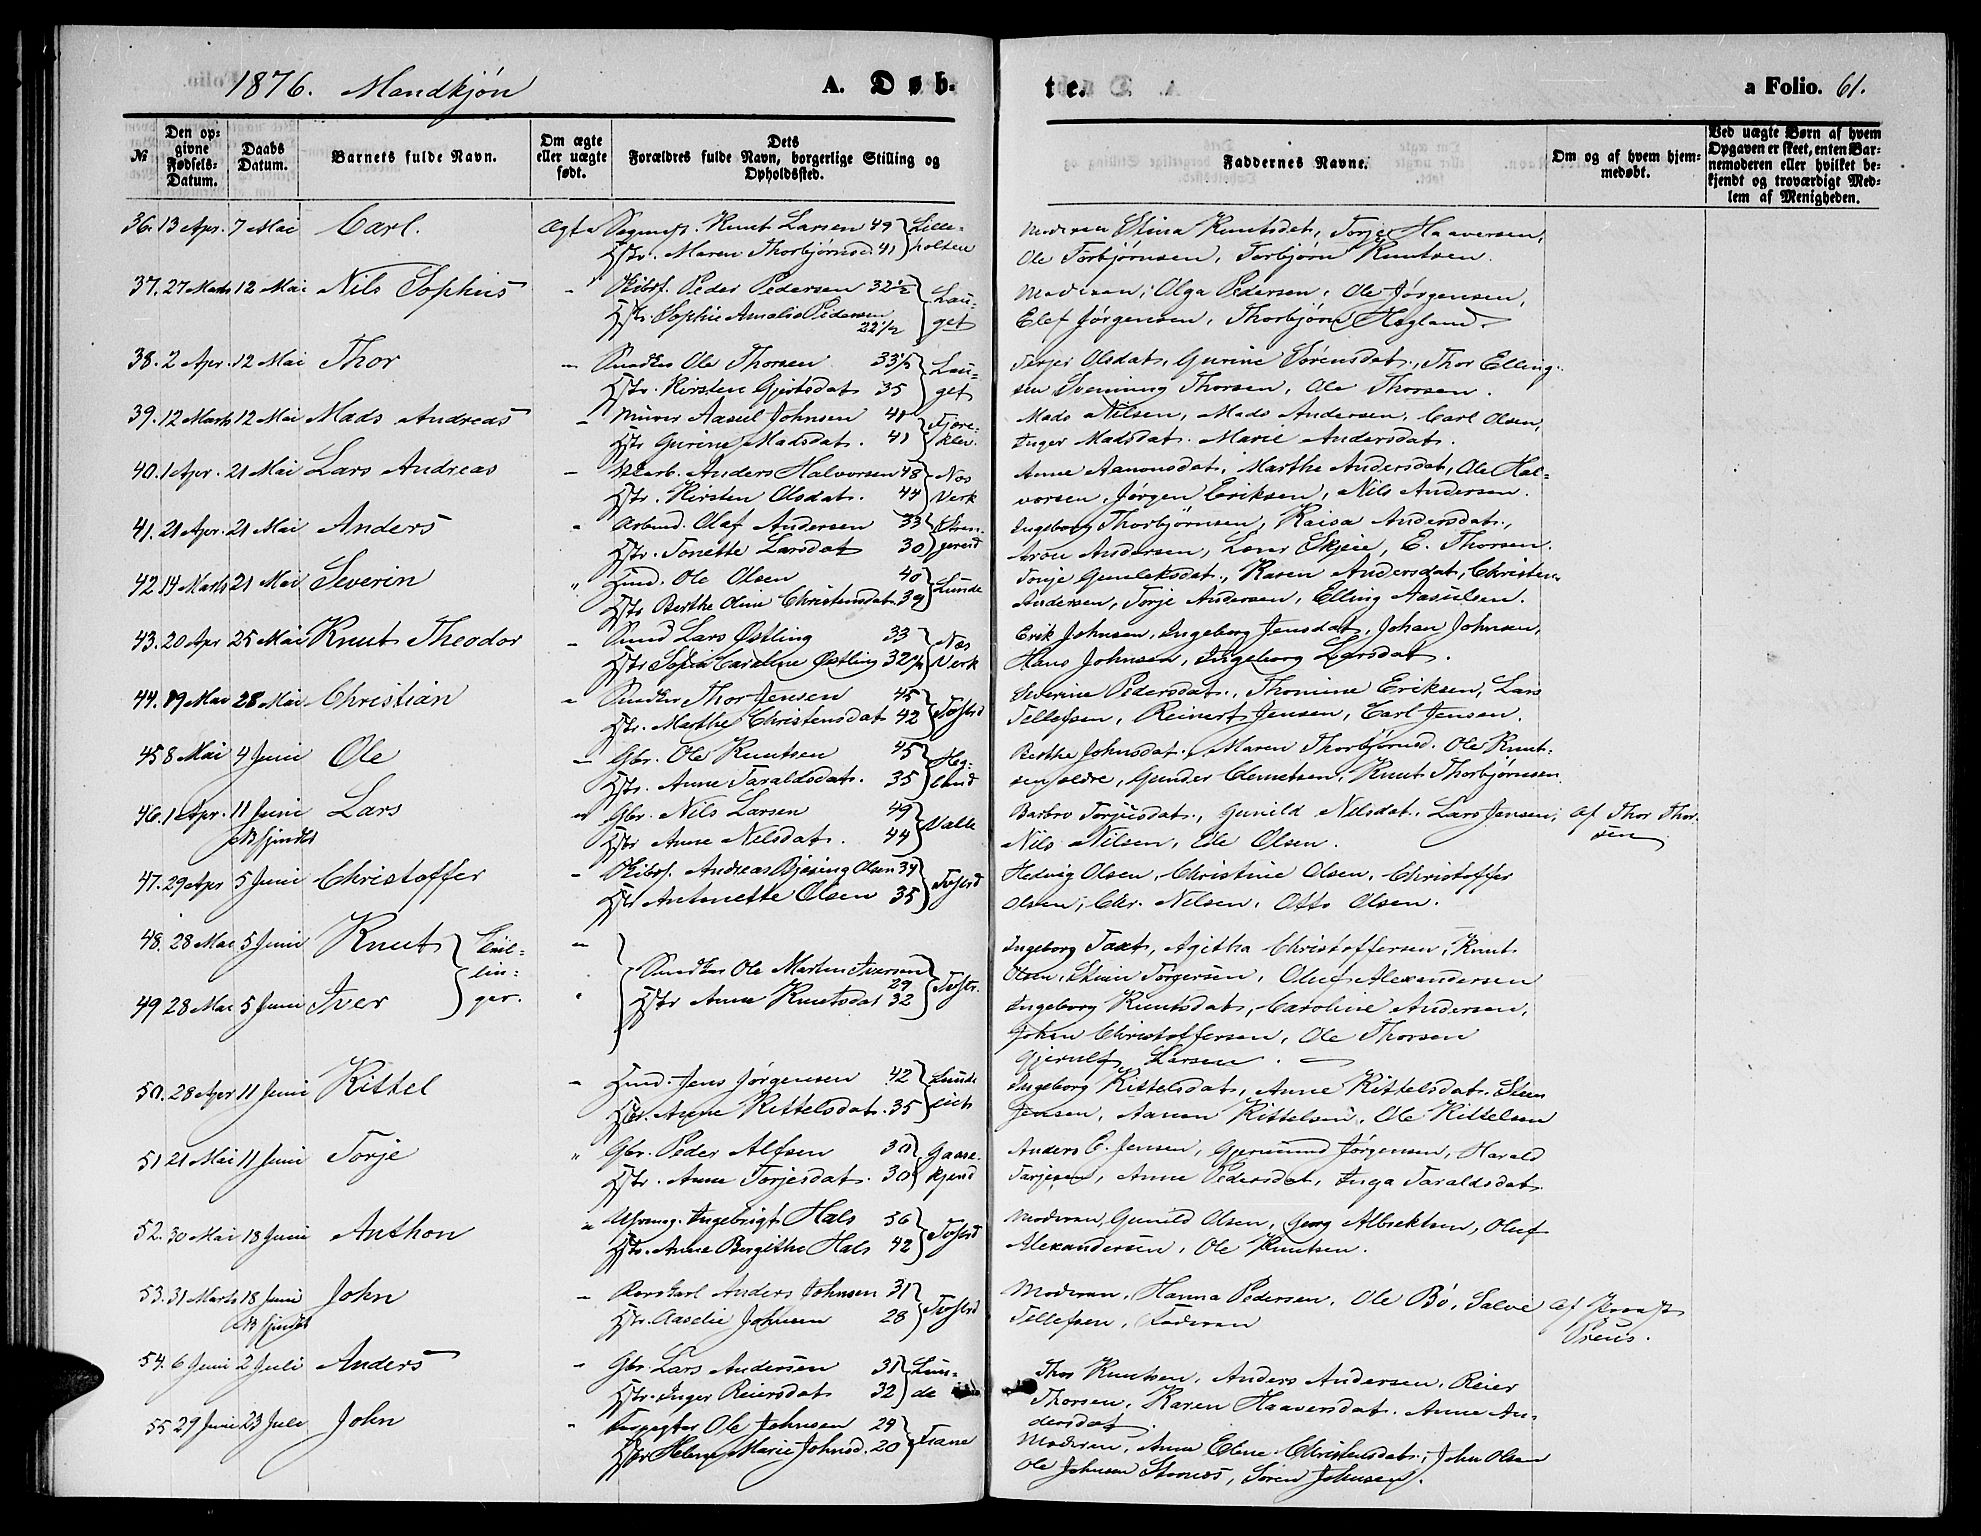 1876. Mandkjøn
A. Døb-
te.
a Folio. 61.
№
Den opgivne Fødsels-Datum.
Daabs Datum.
Barnets fulde Navn.
Om ægte eller uægte født.
Dets Forældres fulde Navn, borgerlige Stilling og Opholdssted.
Faddernes Navne.
Om og af hvem hjemmedøbt.
Ved uægte Børn af hvem Opgaven er skeet, enten Barnemoderen eller hvilket bekjendt og troværdigt Medlem af Menigheden.
36. 13 Apr. 7 Mai Carl. Ægte Knut Larsen 49 Lille-
Hstr. Maren Thorbjørnsd 41 holten
Moderen Stina Knutsdat, Torje Haaversen,
Ole Torbjørnsen, Torbjørn Knutsen.
37. 27 Marts 12 Mai Nils Sophus " Skibsf. Peder Pedersen 32½ Lau-
Hstr. Sophie Amalie Pedersen 22½ get
Moderen, Olga Pedersen, Ole Jørgensen,
Elef Jørgensen, Thorbjørn Hegland
38. 2 Apr. 12 Mai Thor " Ole Thorsen 33½ Lau-
Hstr. Kirsten Gjertsdat 35 get
Olsdat, Gurine Sørensdat, Thor Elling-
sen Svenning Thorsen, Ole Thorsen.
39. 12 Marts 12 Mai Mads Andreas " Murer Aasul Johnsen 41 Fjære-
Hstr Gurine Madsdat. 41 klev.
Mads Nilsen, Mads Andersen, Carl Olsen,
Inger Madsdat. Marie Andersdat.
40. 1 Apr. 21 Mai Lars Andreas " Anders Halvorsen 48 Næs
Hstr. Kirsten Olsdat. 44 Verk
Anne Aanonsdat, Marthe Andersdat, Ole Hal-
vorsen, Jørgen Eriksen, Nils Andersen.
41. 21 Apr. 21 Mai Anders " Arbmd. Olaf Andersen 33
Hstr. Tonette Larsdat 30
Ingeborg Thorbjørnsen, Kaisa Andersdat,
Aron Andersen, Lars Skjeie, E. Thorsen.
42 14 Marts 21 Mai Severin " Hmd. Ole Olsen 40 Lunde
Hstr Berthe Oline Christensdat 39
Tonje Gunleksdat, Karen Andersdat, Christen
Andersen, Torje Andersen, Elling Aasulsen.
43. 20 Apr 25 Mai Knut Theodor " Smed Lars Østling 33 Næs
Hstr Sofia Caroline Østling 32½ Verk
Erik Johnsen, Ingeborg Jensdat, Johan Johnsen,
Hans Johnsen, Ingeborg Larsdat.
44. 19 Mai 28 Mai Christian " Thor Jensen 45 Tvstrd
Hstr. Marthe Christensdat 42
Severine Pedersdat, Thomine Eriksen, Lars
Tellefsen, Reinert Jensen, Carl Jensen.
45 8 Mai 4 Juni Ole " Gbr. Ole Knutsen 45 Heg-
Hstr. Anne Taraldsdat. 35 land
Berthe Johnsdat, Maren Thorbjørnsd. Ole Knut-
sen ældre, Gunder Clemetsen, Knut Thorbjørnsen
46. 1 Apr. 11 Juni Lars " Gbr. Nils Larsen 49 Valle
Hstr Anne Nilsdat. 44
Barbro Torjusdat, Gunild Nilsdat. Lars Jensen,
Nils Nilsen, Ole Olsen.
af Thor Thor-
sen
47. 29 Apr 5 Juni Christoffer " Skibsf. Andreas Olsen 34 Tvstrd
Hstr Antonette Olsen 35
Hedvig Olsen, Christine Olsen, Christoffer
Olsen, Chr. Nilsen, Otto Olsen.
48. 28 Mai 5 Juni Knut Tvil-
lin-
ger.
49 28 Mai 5 Juni Iver
Ole Martin Iversen 29 Tvstr.
Hstr Anne Knutsdat 32
Ingeborg Taxt, Agitha Christoffersen, Knut
Olsen, Torgersen, Oluf Alexandersen
Ingeborg Knutsdat, Caroline Andersen,
Johan Christoffersen, Ole Thorsen
Larsen.
50. 28 Apr 11 Juni Kittel " Hmd. Jens Jørgensen 42 Lunde
Hstr. Anne Kittelsdat. 35
Ingeborg Kittelsdat, Anne Kittelsdat.
Jensen, Aanon Kittelsen, Ole Kittelsen
51 21 Mai 11 Juni Torje " Gbr. Peder Alfsen 30 Gaase-
Hstr. Anne Torjesdat. 30 kjend
Anders C. Jensen, Gjermund Jørgensen, Harald
Tarjesen, Anne Pedersdat, Inga Taraldsdat
52. 30 Mai 18 Juni Anthon " Ingebrigt Hals 56 Tvstrd
Hstr. Anne Bergithe Hals 42
Moderen, Gunild Olsen, Georg Albrektsen, Oluf
Alexandersen, Ole Knutsen.
53. 31 Marts 18 Juni John " Anders Johnsen 31 Tvstrd
Hstr. Aaselie Johnsen 28
Moderen, Hanna Pedersen, Ole Bø, Salve
Tellefsen, Faderen
af Provst
54. 6 Juni 2 Juli Anders " Gbr. Lars Andersen 31 Lun-
Hstr. Inger Reiersdat 32 de
Thor Knutsen, Anders Andersen, Reier
Thorsen, Karen Haaversdat. Anne An-
dersdat
55 29 Juni 23 Juli John " Forpagter Ole Johnsen 24 Trane
Hstr Helene Marie Johnsd. 20
Moderen, Anne Elene Christensdat, John Olsen
Ole Johnsen Steenes, Søren Johnsen.